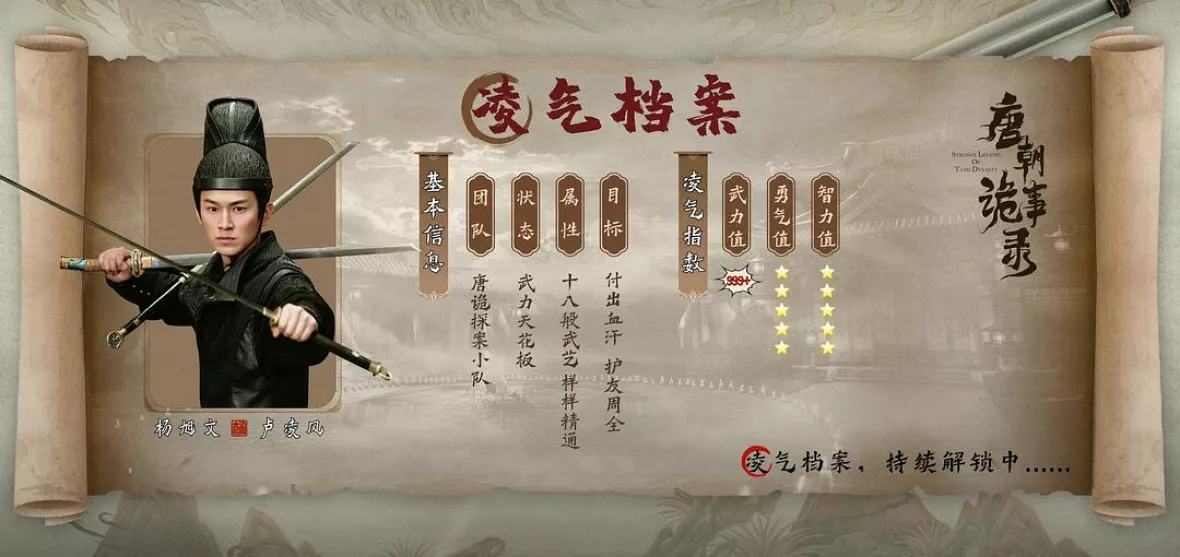 凌气档案
基本信息
团队
唐诡探案小队
状态
武力天花板
属性
十八般武艺 样样精通
目标
付出血汗 护友周全
凌气指数
武力值
999+
勇气值
智力值
唐朝诡事录
STRANGE LEGEND
OF
TANG DYNASTY
杨旭文 卢凌风
凌气档案，持续解锁中……